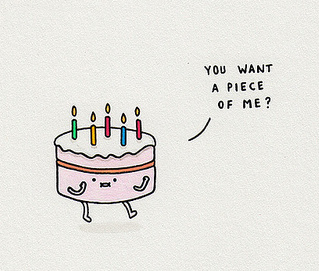 YOU WANT
A PIECE
OF ME?